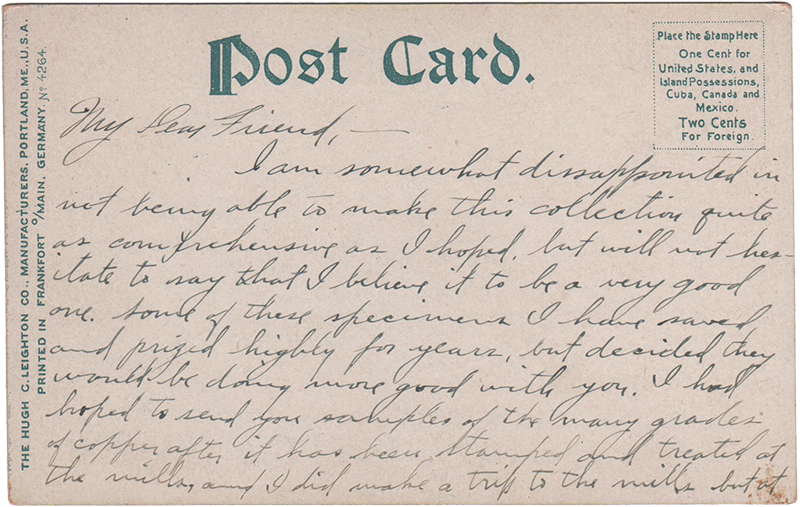 Post Card.
Place the Stamp Here
One Cent for
United States, and
Island Possessions,
Cuba, Canada and
Mexico.
Two Cents
For Foreign.
THE HUGH C. LEIGHTON CO., MANUFACTURERS, PORTLAND, ME., U.S.A.
PRINTED IN FRANKFORT O/MAIN, GERMANY. No. 4264.
My Dear Friend, —
I am somewhat dissappointed in
not being able to make this collection quite
as comprehensive as I hoped, but will not hes-
itate to say that I believe it to be a very good
one. Some of these specimens I have saved
and prized highly for years, but decided they
would be doing more good with you. I had
hoped to send you samples of the many grades
of copper after it has been stamped and treated at
the mills, and I did make a trip to the mills but at